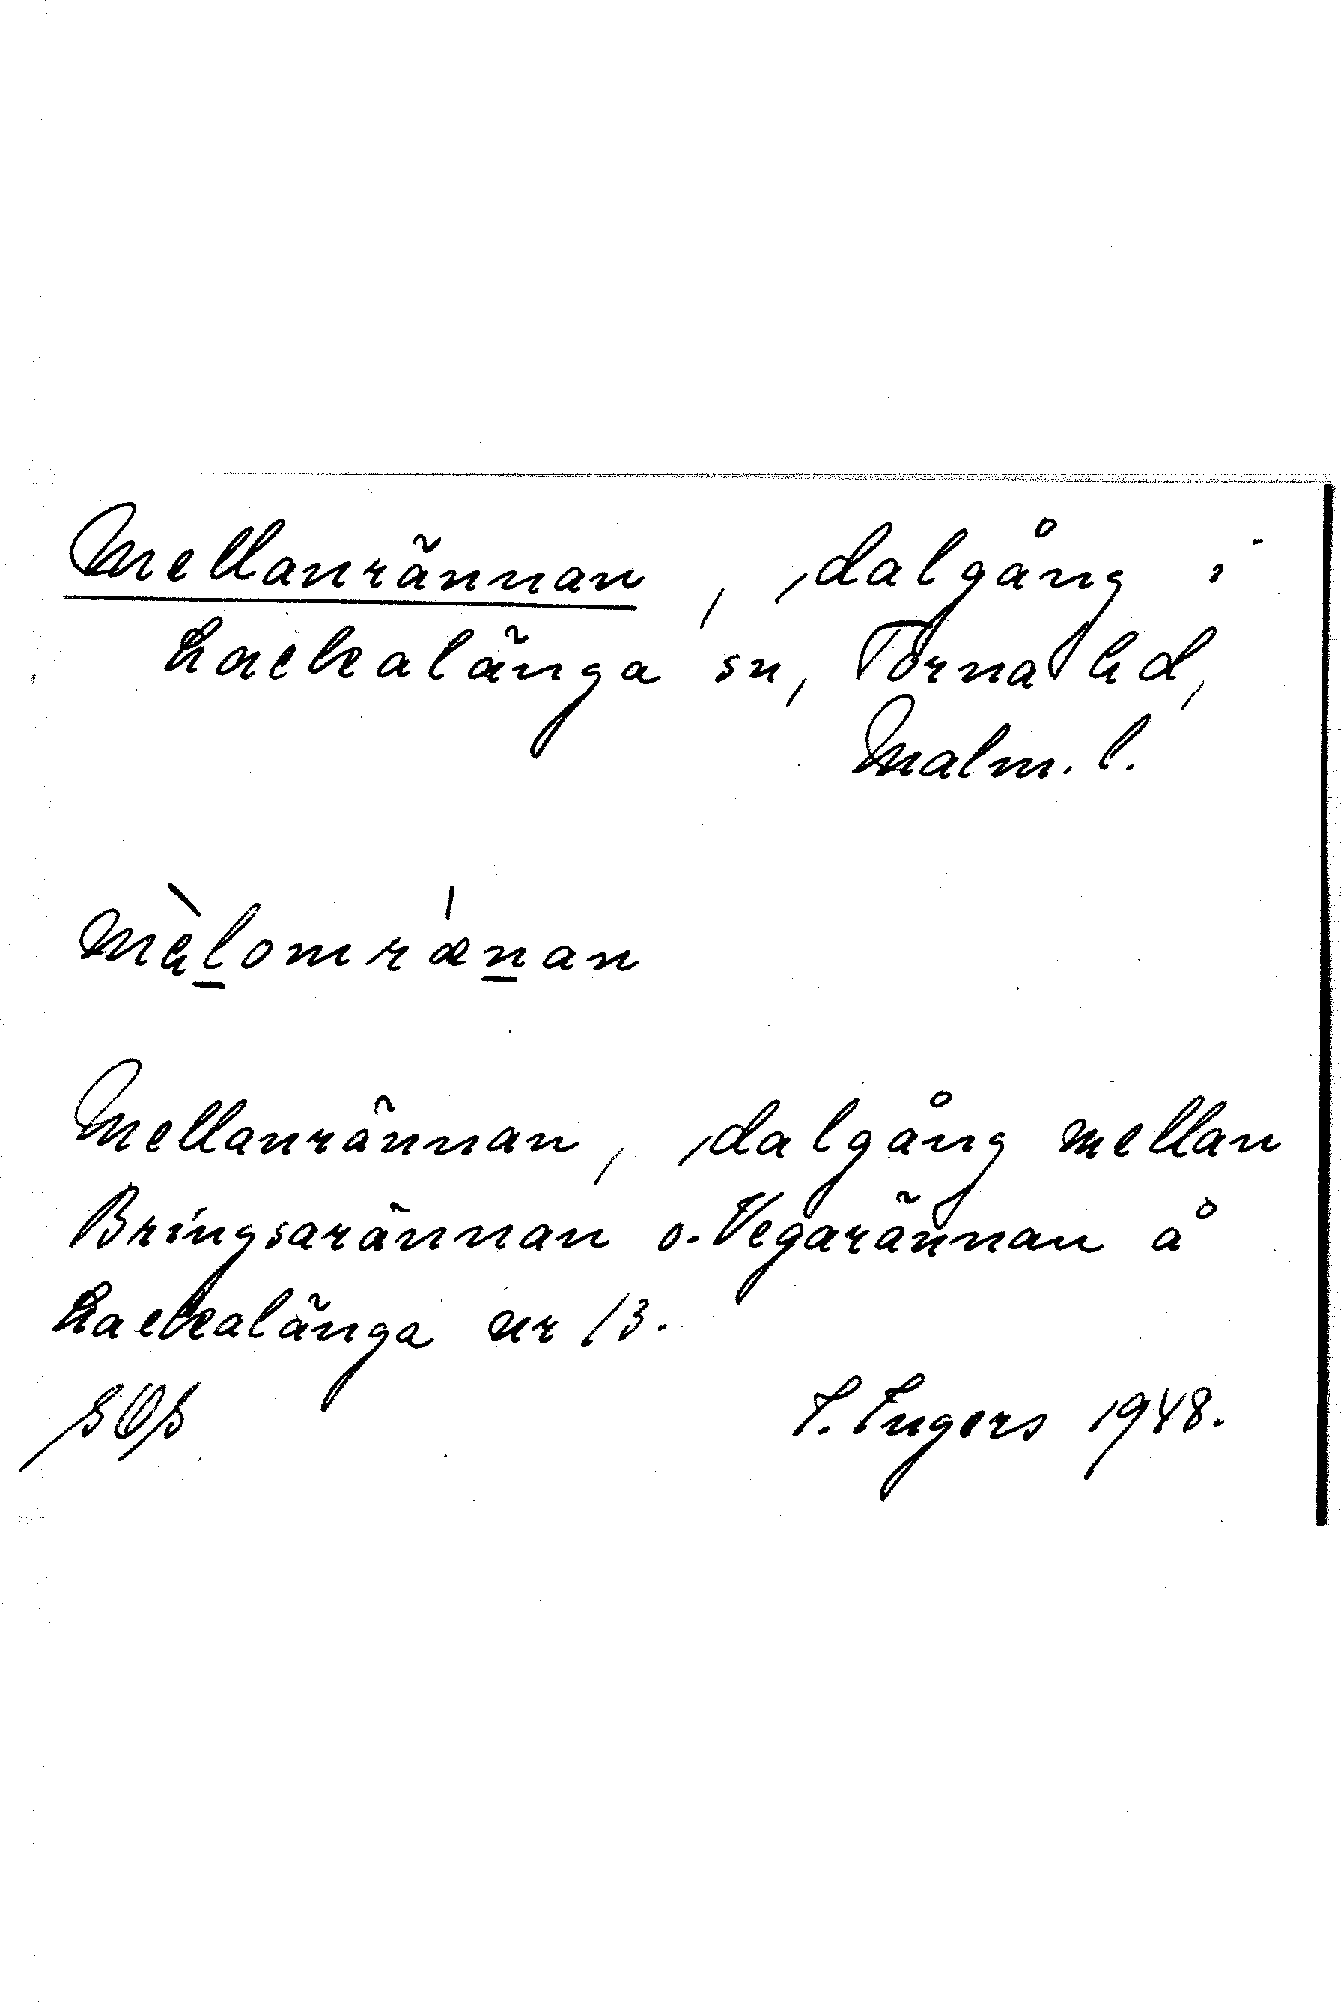 Mellanrännan, dalgång i
Lackalänga sn, Torna hd,
Malm. l.
mèl̲omrǽn̲an
Mellanrännan, dalgång mellan
Bringsarännan o. Vegarännan å
Lackalänga nr 13.
I. Ingers 1948.